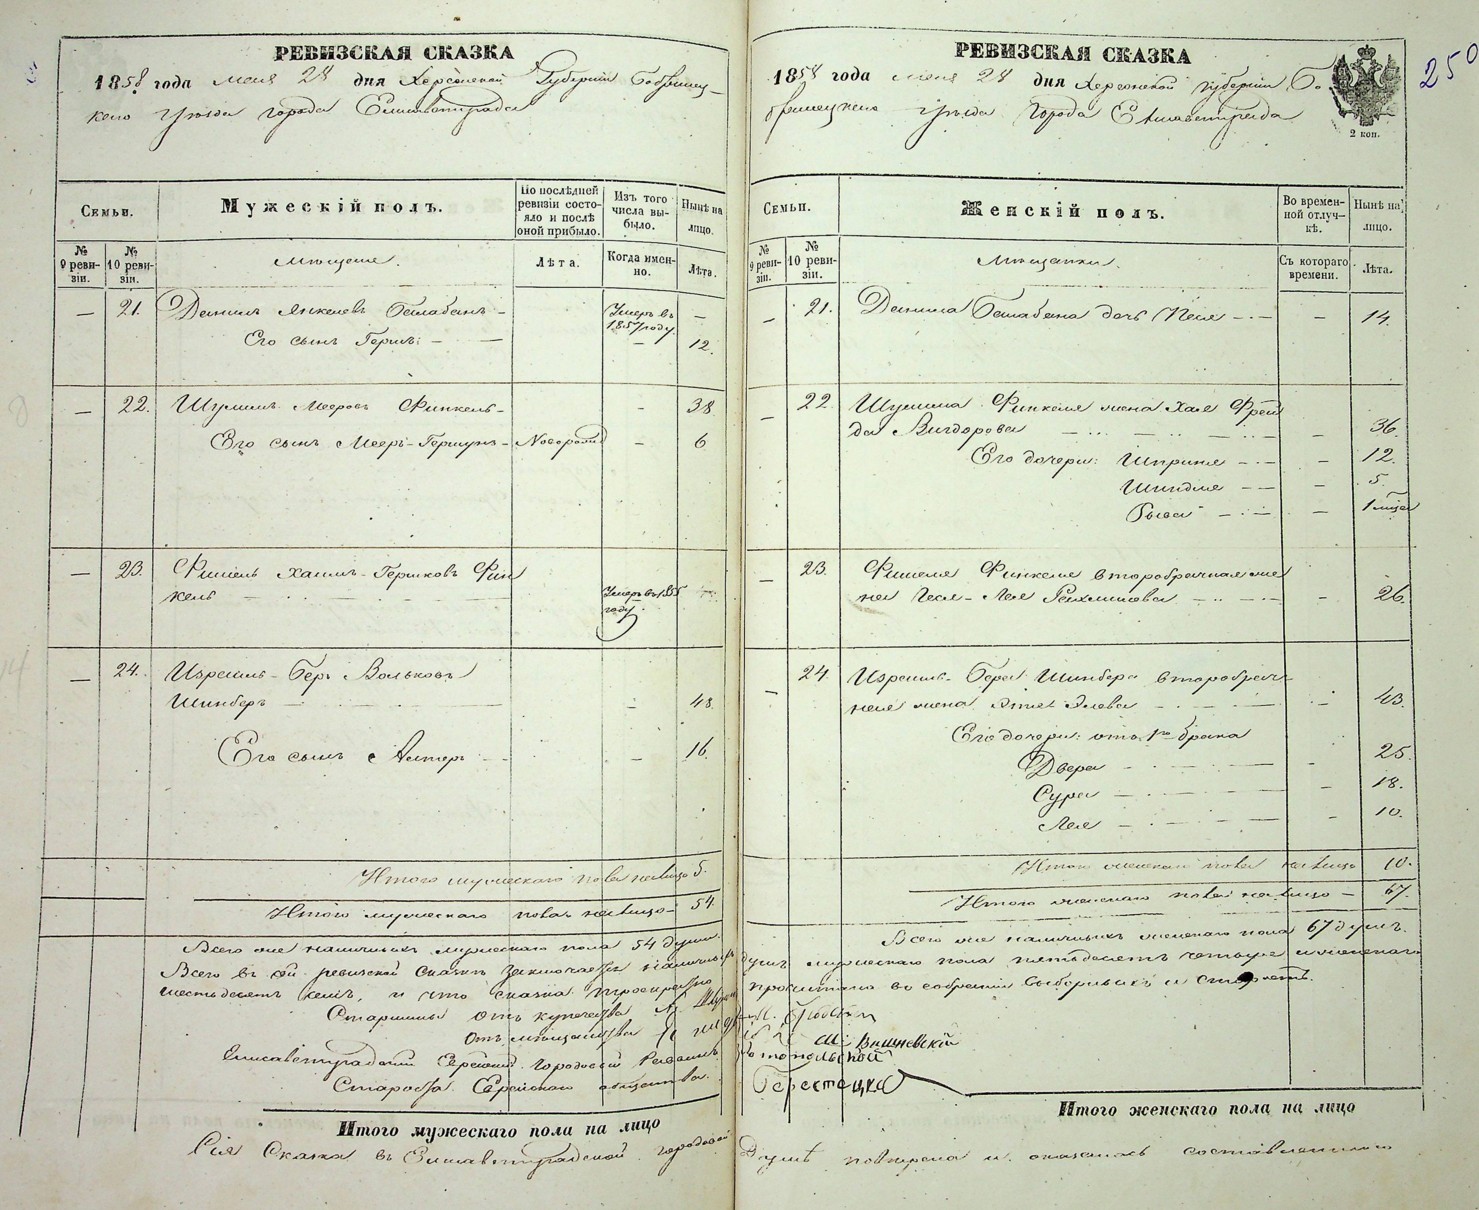 РЕВИЗСКАЯ СКАЗКА
1858 года мая 28 дня Херсонской Губернии Бобринец-
каго уезда города Елисаветграда
Семьи.
Мужескій полъ.
По послѣдней ревизіи состо-яло и послѣ оной прибыло.
Изъ того числа вы-было.
Нынѣ на лицо.
№ 9 реви-зіи.
№ 10 реви-зіи.
Мѣщане.
Лѣта.
Когда имен-но.
Лѣта.
— 21. Данилъ Янкелевъ Балабанъ — Умеръ въ 1857 году. —
Его сынъ Гершъ: — — — 12.
— 22. Шулимъ Мееровъ Финкель — — 38
Его сынъ Мееръ-Гершунъ — Новорожд — 6
— 23. Фишель Хаимъ-Гершковъ Фин
кель — Умеръ въ 1855 году. —
— 24. Израиль-Беръ Вольковъ
Шинберъ — — 48.
Его сынъ Алтеръ — — 16.
Итого мужескаго пола на лицо 5.
Итого мужескаго пола на лицо — 54.
РЕВИЗСКАЯ СКАЗКА
1858 года мая 28 дня Херсонской Губерніи Бо
бринецкаго уѣзда Города Елисаветграда
2 коп.
250
Семьи.
Женскій полъ.
Во времен-ной отлуч-кѣ.
Нынѣ на лицо.
№ 9 реви-зіи.
№ 10 реви-зіи.
Мѣщанки.
Съ котораго времени.
Лѣта.
— 21. Данила Балабана дочь Песя — — 14.
— 22 Шулима Финкеля жена Хая Фрей
да Вигдорова — — 36.
Его дочери: Шприня — — 12.
Шиндля — — 5.
Рыва — —
— 23. Фишеля Финкеля второбрачная же
на Лея — 26.
— 24. Израиль-Бера Шинбера второбрач-
ная жена — 43.
Его дочери: отъ 1го брака
Двера — — 25.
Сура — — 18.
Лея — — 10.
Итого женскаго пола на лицо 10.
Итого женскаго пола на лицо — 67.
Всего же наличныхъ мужескаго пола 54 души.
Всего же наличныхъ женскаго пола 67 душъ.
Всего въ сей ревизской сказкѣ заключается наличныхъ душъ мужескаго пола пятьдесятъ четыре и женскаго
шестьдесятъ семь, и что сказка прочитана въ собраніи
Старшины отъ купечества
отъ мѣщанства Ш. Вишневскій
Елисаветградскій Еврейскій Городовой Раввинъ
Староста Еврейскаго общества
Итого мужескаго пола на лицо
Итого женскаго пола на лицо
Сія Сказка въ Елисаветградской городовой Думѣ повѣрена и оказалась составленною